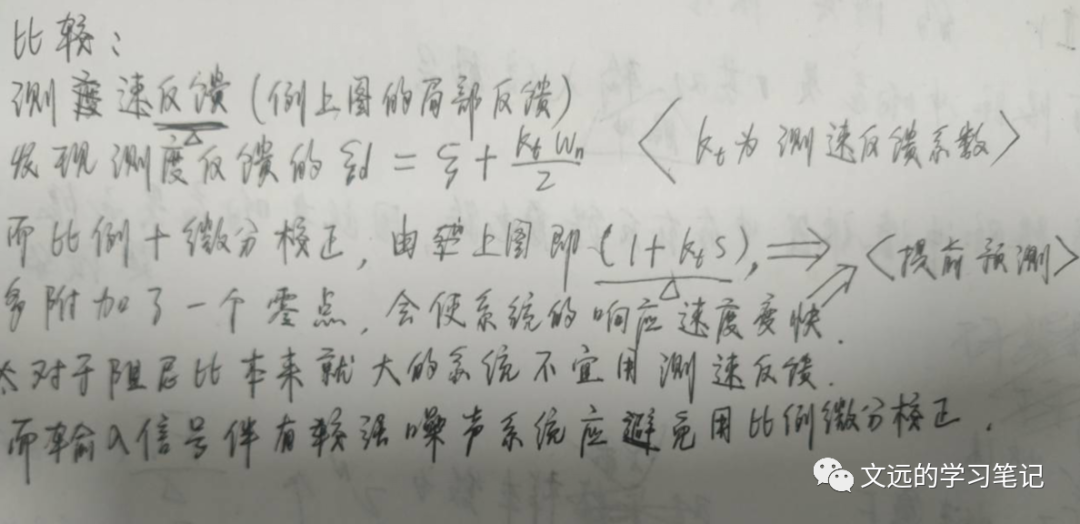 比较：
测度速反馈（例上图的局部反馈）
发现测度反馈的 ξd = ξ + kt ωn / 2 〈kt为测速反馈系数〉
而比例+微分校正，由 上图即(1+kts)，⇒〈提前预测〉
多附加了一个零点，会使系统的响应速度变快．
对于阻尼比本来就大的系统不宜用测速反馈．
而车输入信号伴有较强噪声系统应避免用比例微分校正．
文远的学习笔记